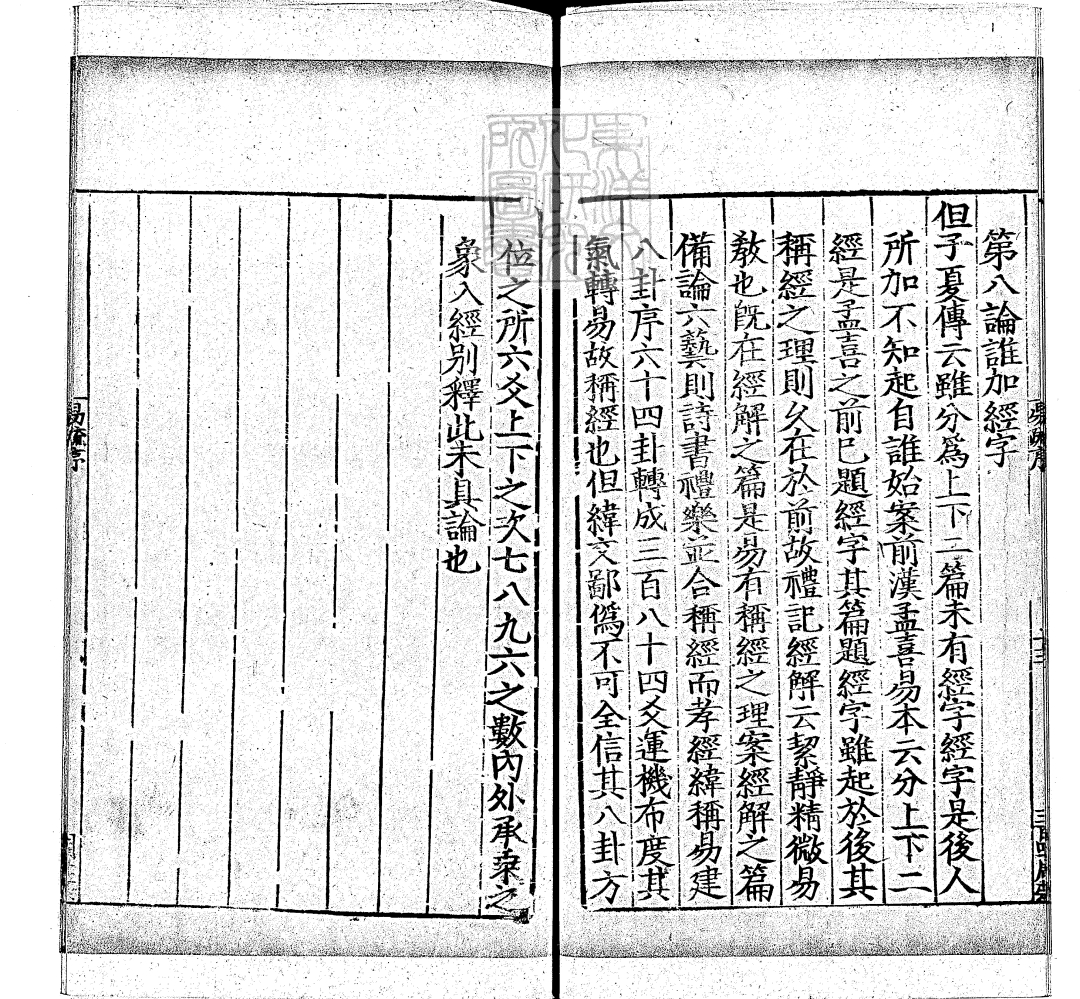 第八論誰加經字
但子夏傳云雖分爲上下二篇未有經字經字是後人
所加不知起自誰始案前漢孟喜易本云分上下二
經是孟喜之前已題經字其篇題經字雖起於後其
稱經之理則久在於前故禮記經解云絜靜精微易
教也旣在經解之篇是易有稱經之理案經解之篇
備論六藝則詩書禮樂並合稱經而孝經緯稱易建
八卦序六十四卦轉成三百八十四爻運機布度其
氣轉易故稱經也但緯文鄙僞不可全信其八卦方
位之所六爻上下之次七八九六之數內外承乘之
象入經別釋此未具論也
易疏序